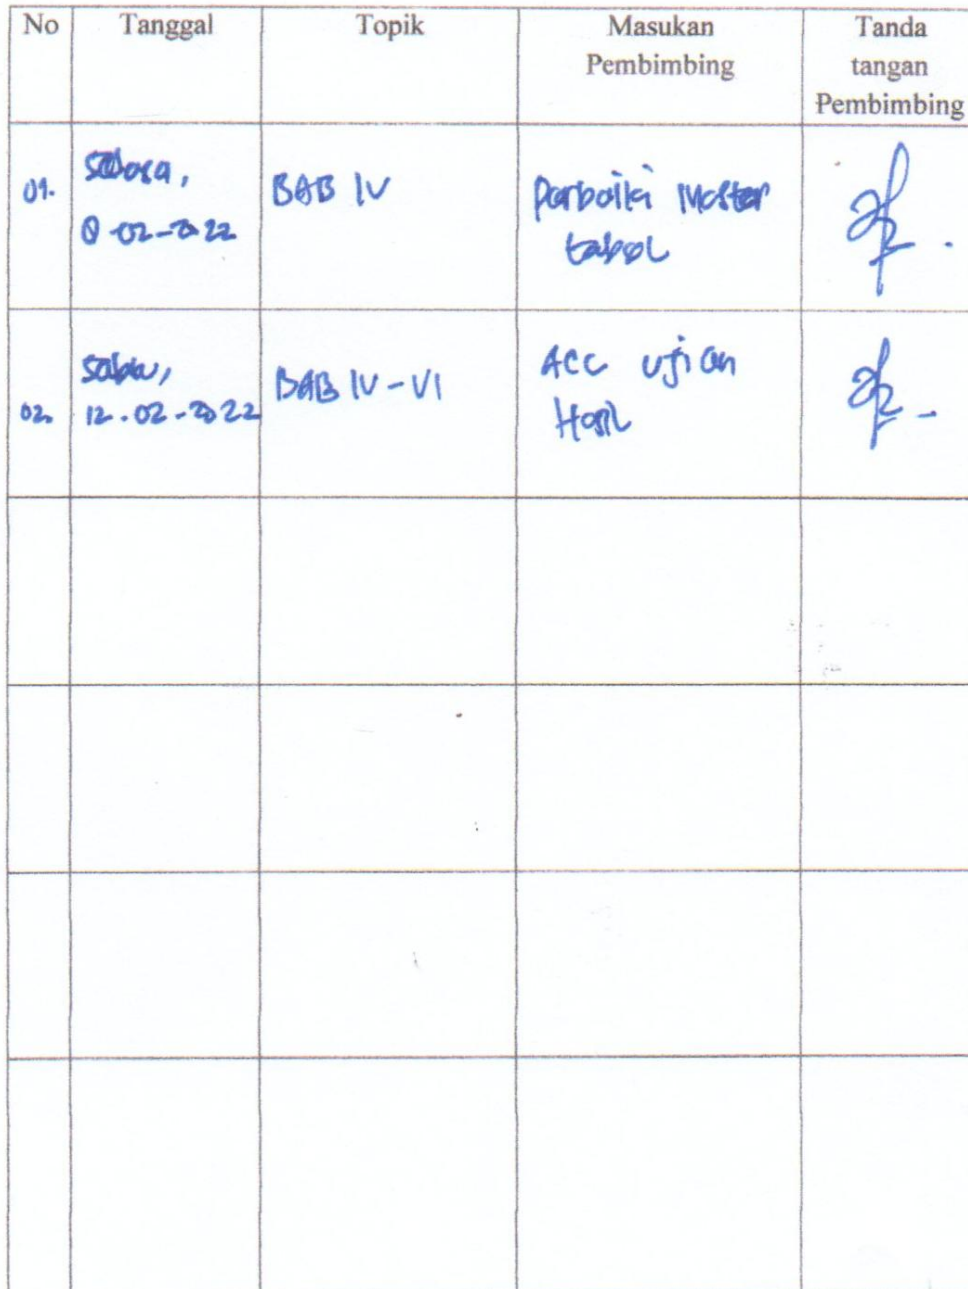 No Tanggal Topik Masukan Pembimbing Tanda tangan Pembimbing
01. Selasa, 8-02-2022 BAB IV Perbaiki Master tabel
02. Sabtu, 12-02-2022 BAB IV-VI ACC Ujian Hasil